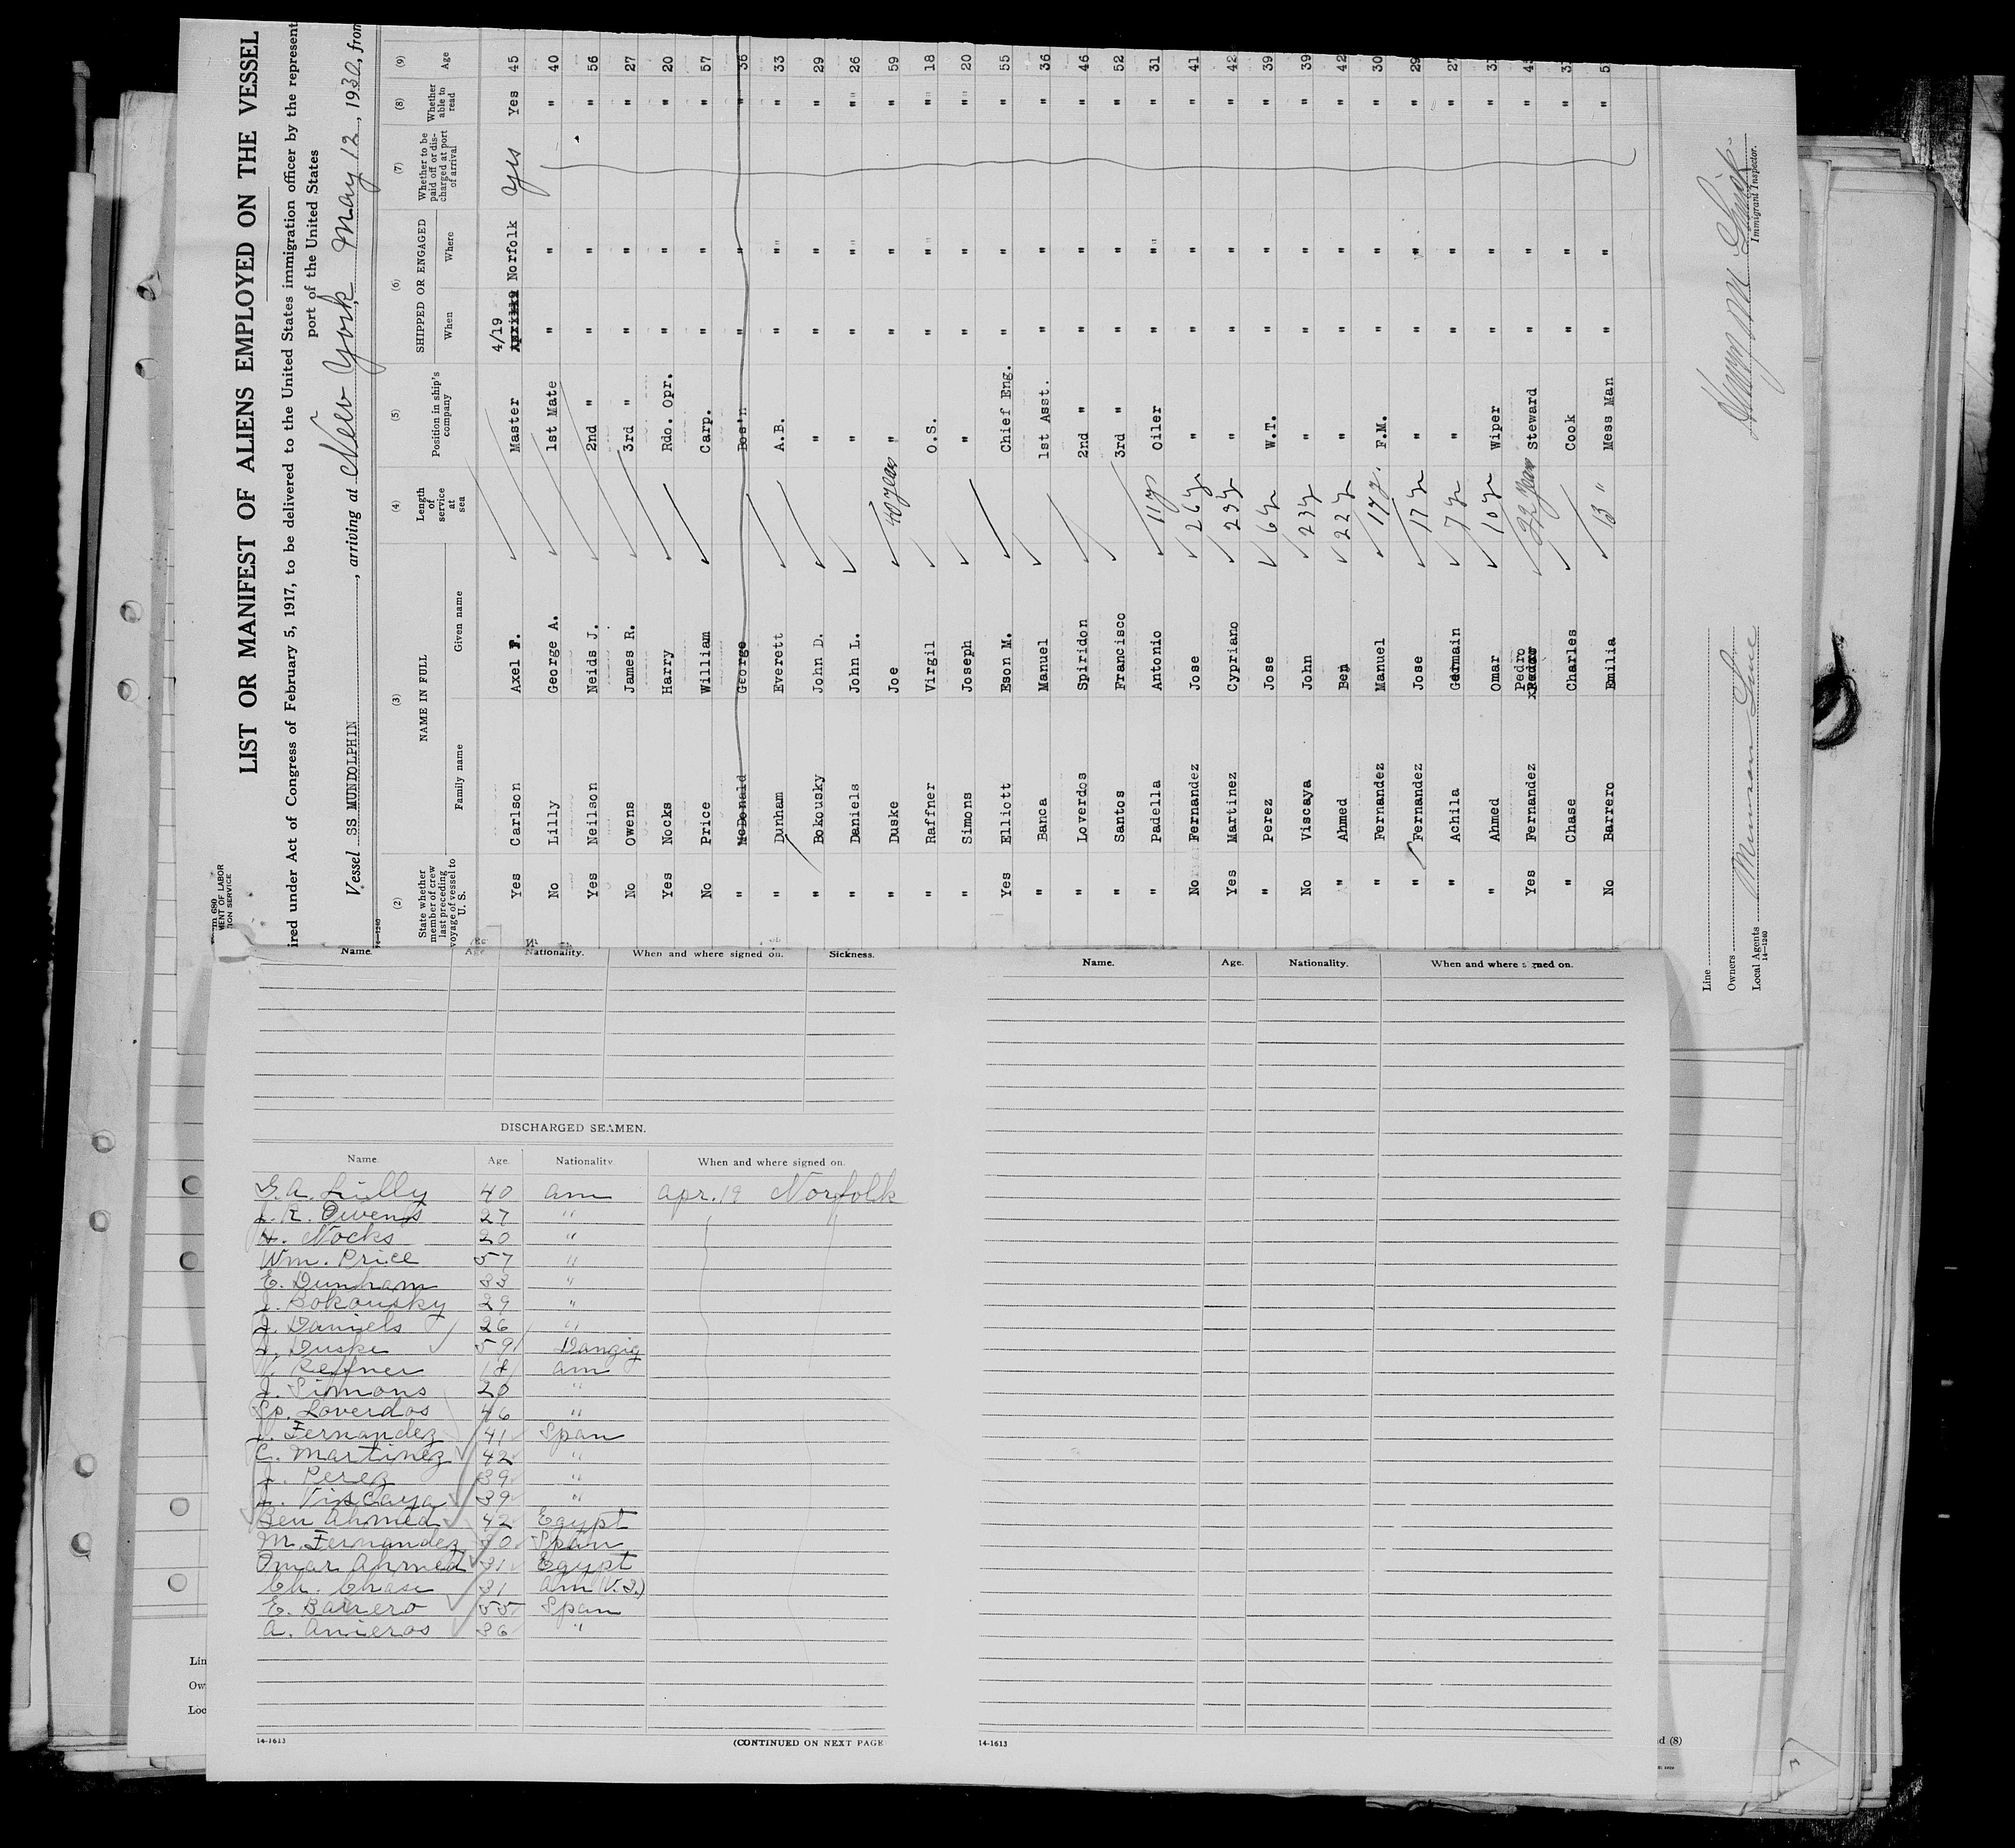 LIST OR MANIFEST OF ALIENS EMPLOYED ON THE VESSEL
ired under Act of Congress of February 5, 1917, to be delivered to the United States immigration officer by the represent
port of the United States
Vessel SS MUNDOLPHIN, arriving at New York May 12, 1930, from
14-1240
(2) (3) (4) (5) (6) (7) (8) (9)
State whether member of crew last preceding voyage of vessel to U. S. NAME IN FULL Family name Given name Length of service at sea Position in ship's company SHIPPED OR ENGAGED When Where Whether to be paid off or discharged at port of arrival Whether able to read Age
Yes Carlson Axel F. Master 4/19 Norfolk Yes Yes 45
No Lilly George A. 1st Mate " " " 40
Yes Neilson Neids J. 2nd " " " " 56
No Owens James R. 3rd " " " " 27
Yes Nocks Harry Rdo. Opr. " " " 20
No Price William Carp. " " " 57
" McDonald George Bos'n " " " 36
" Dunham Everett A.B. " " " 33
" Bokousky John D. " " " " 29
" Daniels John L. " " " " 26
" Duske Joe 40 years " " " " 59
" Raffner Virgil O.S. " " " 18
" Simons Joseph " " " " 20
Yes Elliott Eson M. Chief Eng. " " " 55
" Banca Manuel 1st Asst. " " " 36
" Loverdos Spiridon 2nd " " " " 46
" Santos Francisco 3rd " " " " 52
" Padella Antonio 11 ys Oiler " " " 31
No Fernandez Jose 26 y " " " " 41
Yes Martinez Cypriano 23 y " " " " 42
" Perez Jose 6 y W.T. " " " 39
No Viscaya John 23 y " " " " 39
" Ahmed Ben 22 y " " " " 42
" Fernandez Manuel 17 y. F.M. " " " 30
" Fernandez Jose 17 y " " " " 29
" Achila Germain 7 y " " " "
" Ahmed Omar 10 y Wiper " " "
Yes Fernandez Pedro 22 years Steward " " "
" Chase Charles Cook " " "
No Barrero Emilia 13 " Mess Man " " "
Line
Owners Munson Line
Local Agents
14-1240
Immigrant Inspector.
Name. Age. Nationality. When and where signed on. Sickness.
DISCHARGED SEAMEN.
Name. Age. Nationality. When and where signed on.
G.A. Lilly 40 am apr. 19 Norfolk
J. R. Owens 27 " "
H. Nocks 20 "
Wm. Price 57 "
E. Dunham 33 "
J. Bokousky 29 "
J. Daniels 26 "
J. Duske 59 Danzig
V. Reffner 18 am
J. Simons 20 "
Sp. Loverdos 46 "
J. Fernandez 41 Span
C. Martinez 42 "
J. Perez 39 "
J. Viscaya 39 "
Ben Ahmed 42 Egypt
M. Fernandez 30 Span
Omar Ahmed 31 Egypt
Ch. Chase 31 am (V.I.)
E. Barrero 55 Span
A. Anieros 36 "
14-1613
(CONTINUED ON NEXT PAGE
Name. Age. Nationality. When and where signed on.
14-1613
Lin
Ow
Loc
d (8)